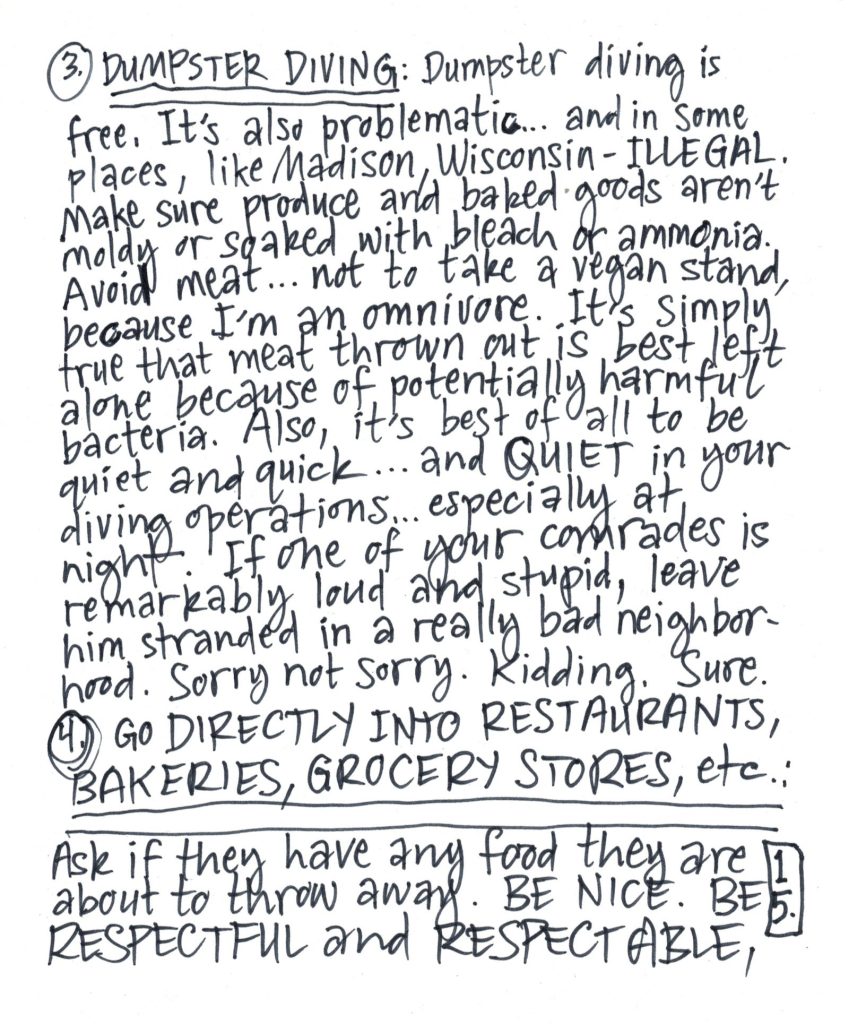 3. DUMPSTER DIVING: Dumpster diving is
free. It's also problematic... and in some
places, like Madison, Wisconsin - ILLEGAL.
Make sure produce and baked goods aren't
moldy or soaked with bleach or ammonia.
Avoid meat... not to take a vegan stand,
because I'm an omnivore. It's simply
true that meat thrown out is best left
alone because of potentially harmful
bacteria. Also, it's best of all to be
quiet and quick... and QUIET in your
diving operations... especially at
night. If one of your comrades is
remarkably loud and stupid, leave
him stranded in a really bad neighbor-
hood. Sorry not sorry. Kidding. Sure.
4. GO DIRECTLY INTO RESTAURANTS,
BAKERIES, GROCERY STORES, etc.:
Ask if they have any food they are
about to throw away. BE NICE. BE
RESPECTFUL and RESPECTABLE,
15.